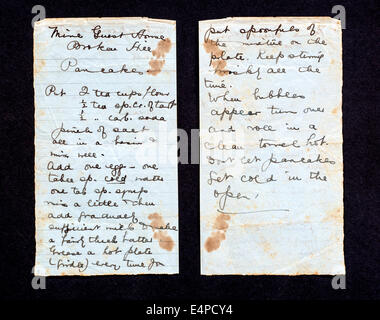 Mine Guest House
Broken Hill
Pancakes.
Put 2 tea cups flour
½ tea sp. Cr. of tart
¼ " carb. soda
pinch of salt
all in a basin
mix well.
Add one egg - one
table sp. cold water
one tab sp. syrup
mix a little & then
add gradually
sufficient milk to make
a fairly thick batter
Grease a hot plate
(griddle) every time for
put spoonfuls of
the mixture on the
plate. Keep stirring
all the
time.
When bubbles
appear turn one
and roll in a
clean towel hot.
Dont let pancakes
get cold in the
open.
alamy
Image ID: E4PCY4
www.alamy.com